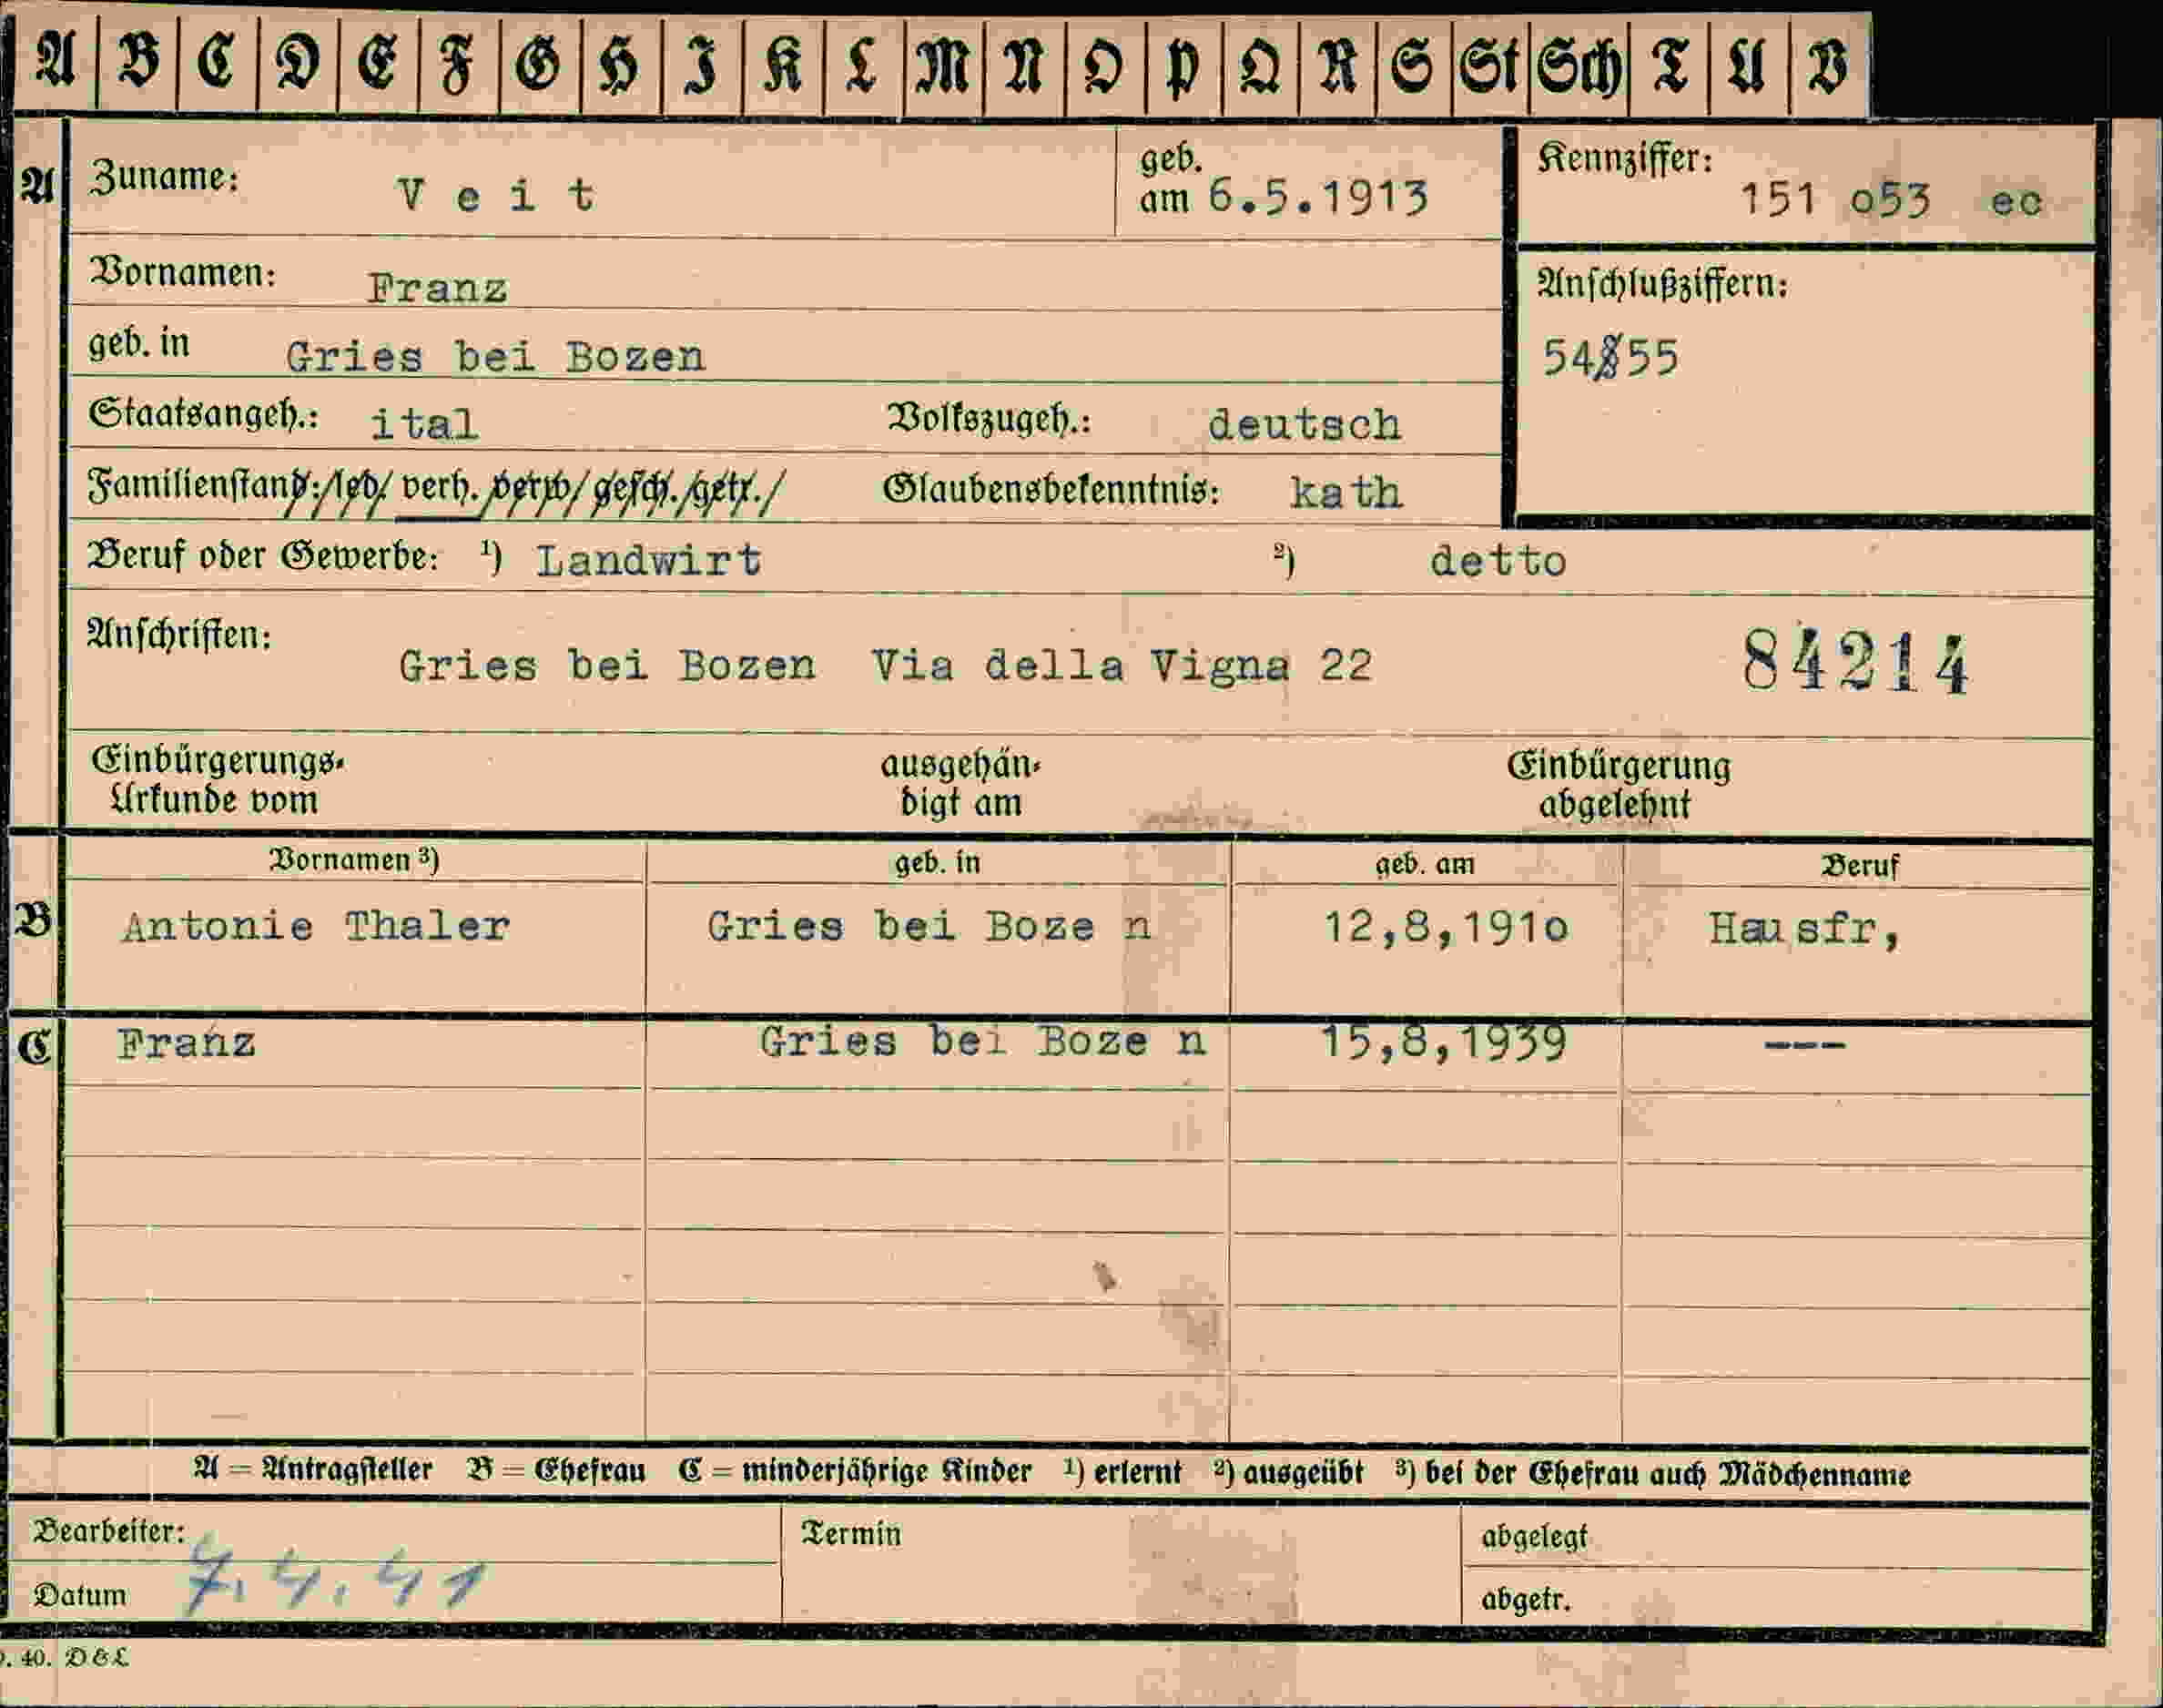 A B C D E F G H I K L M N O P Q R S St Sch T U V
A Zuname: Veit geb. am 6.5.1913 Kennziffer: 151 o53 ec
Vornamen: Franz Anschlußziffern:
geb. in Gries bei Bozen 54 55
Staatsangeh.: ital Volkszugeh.: deutsch
Familienstand: led. verh. verw. gesch. getr. Glaubensbekenntnis: kath
Beruf oder Gewerbe: 1) Landwirt 2) detto
Anschriften: Gries bei Bozen Via della Vigna 22 84214
Einbürgerungs- ausgehän- Einbürgerung
Urkunde vom digt am abgelehnt
Vornamen 3) geb. in geb. am Beruf
B Antonie Thaler Gries bei Bozen 12,8,191o Hausfr,
C Franz Gries bei Bozen 15,8,1939 ---
A = Antragsteller B = Ehefrau C = minderjährige Kinder 1) erlernt 2) ausgeübt 3) bei der Ehefrau auch Mädchenname
Bearbeiter: Termin abgelegt
Datum 7.4.41 abgetr.
40. D&L